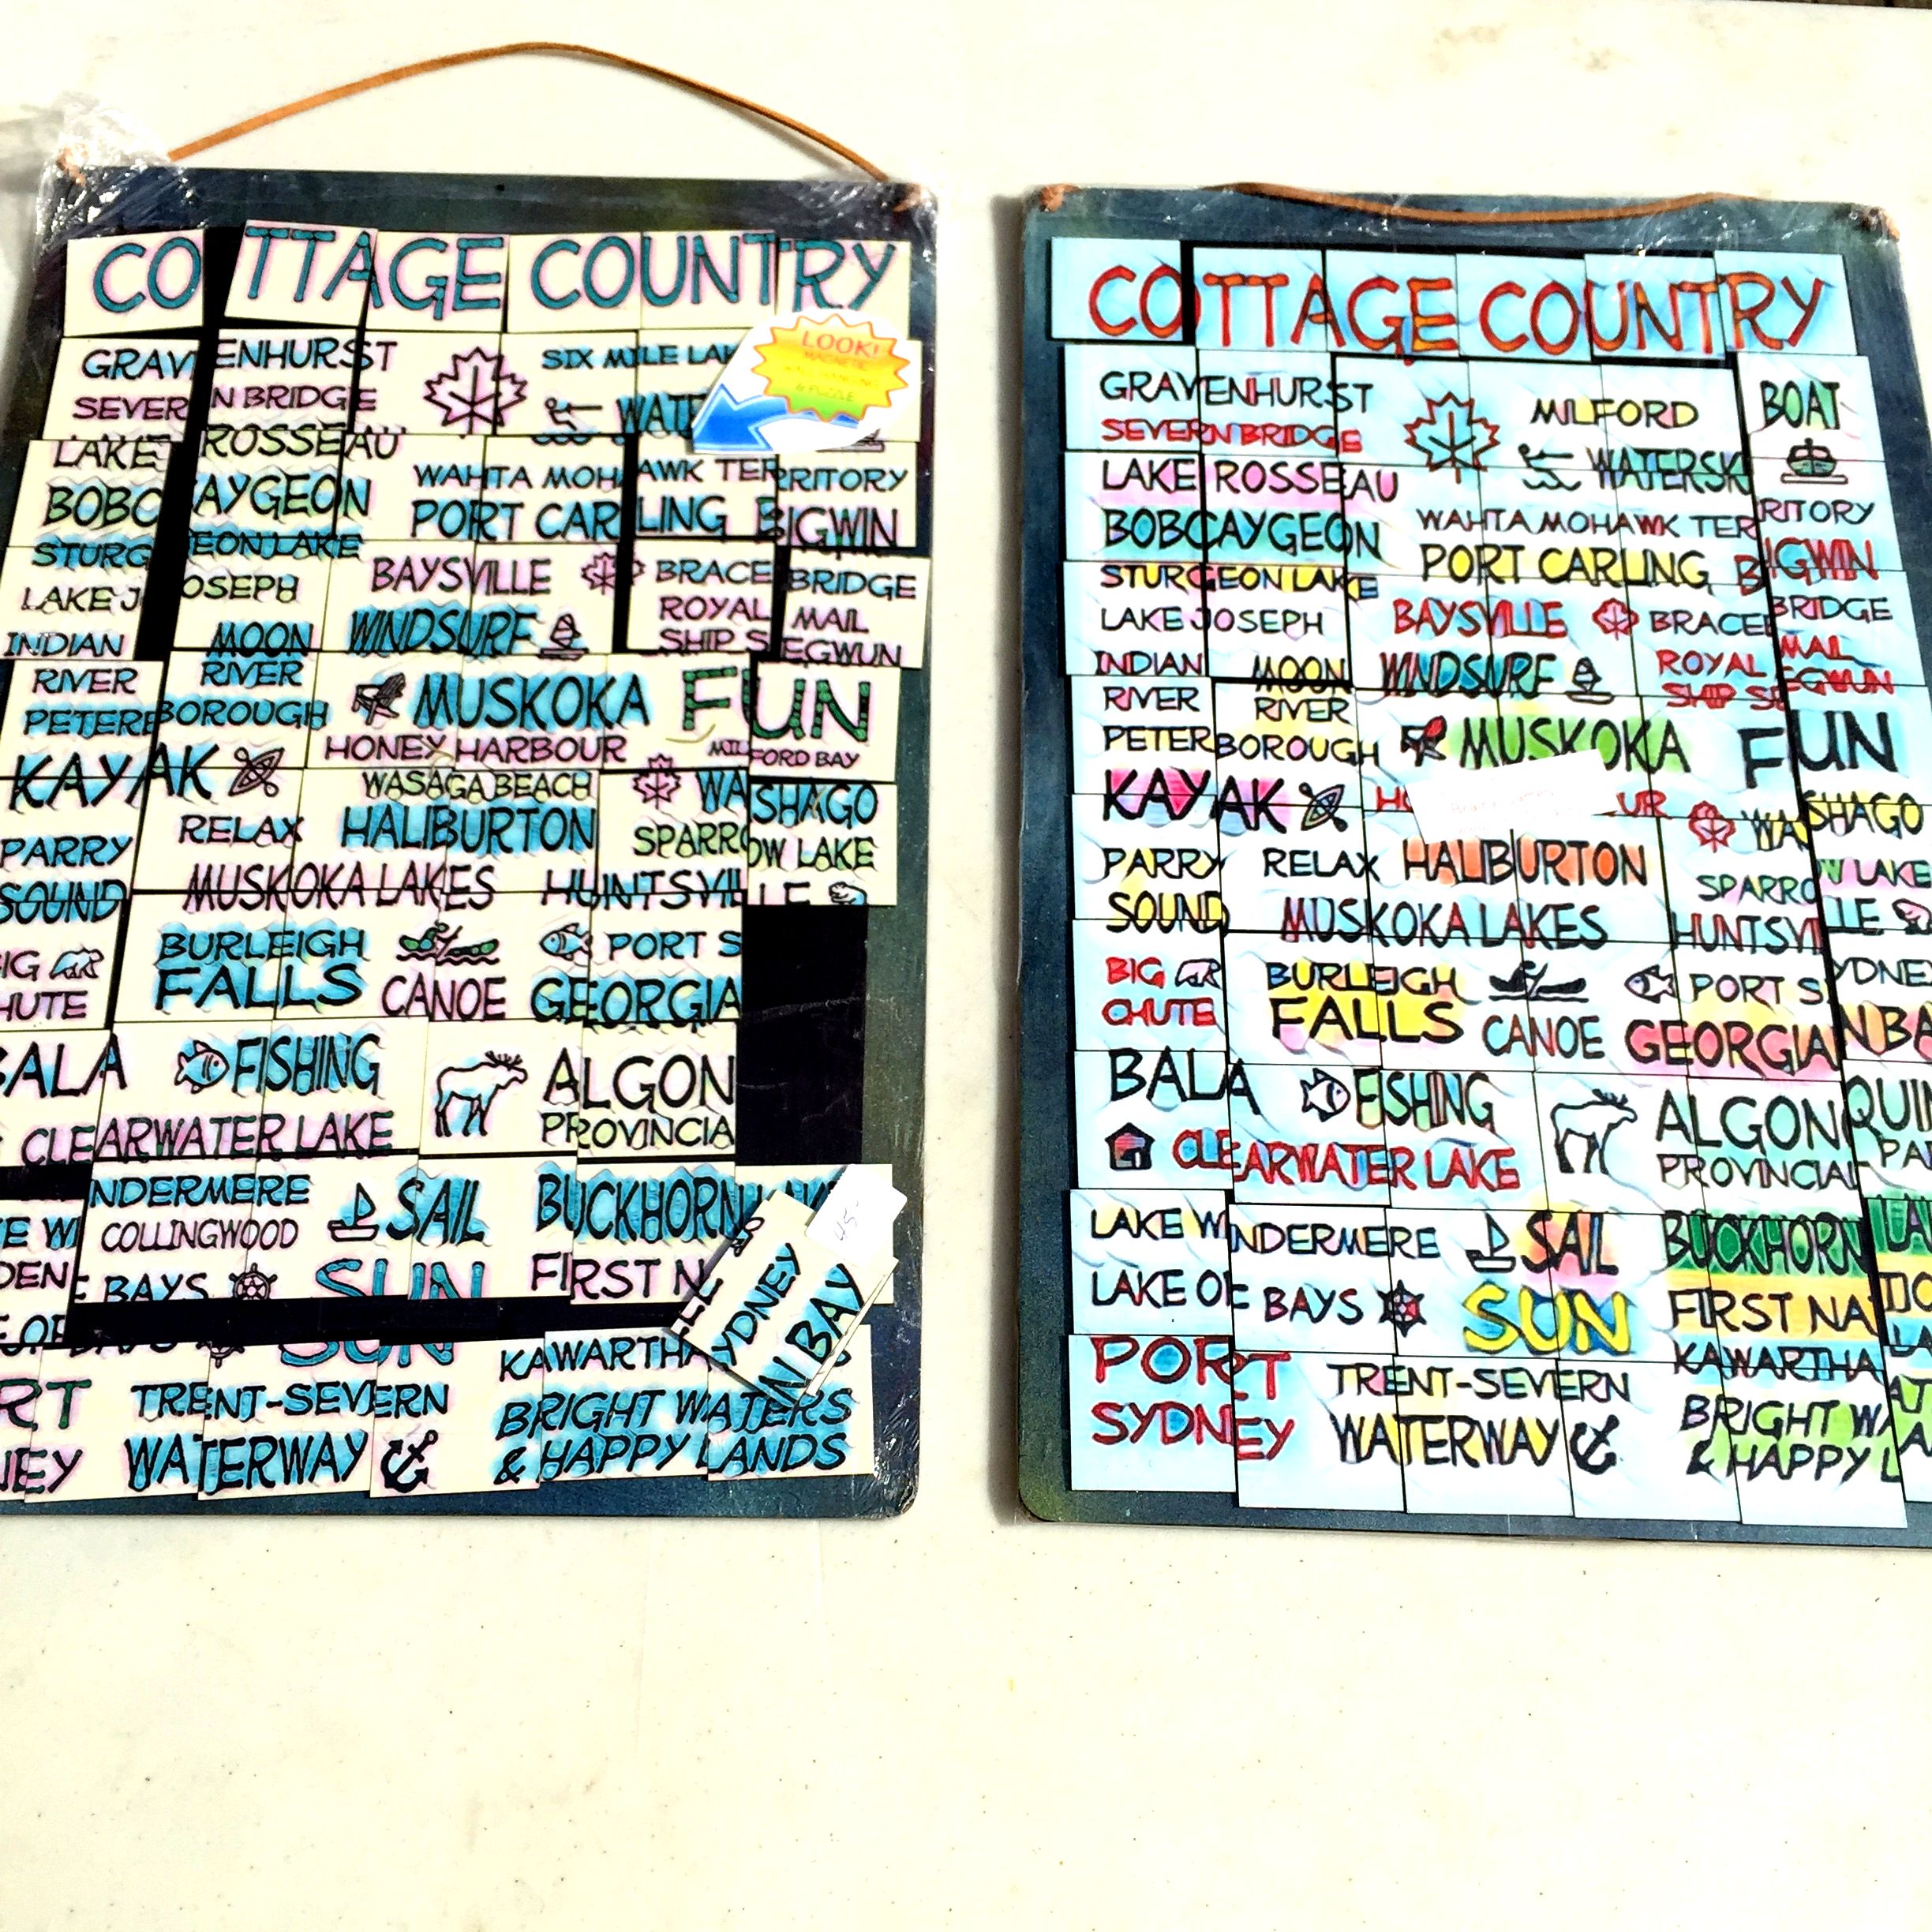 COTTAGE COUNTRY
GRAVENHURST
SEVERN BRIDGE
SIX MILE LAK
WATE
LOOK!
MAGNETIC
WALL HANGING
& PUZZLE
LAKE ROSSEAU
BOBCAYGEON
WAHTA MOHAWK TERRITORY
PORT CARLING BIGWIN
STURGEON LAKE
LAKE JOSEPH
INDIAN MOON
BAYSVILLE
WINDSURF
BRACEBRIDGE
ROYAL MAIL
SHIP SEGWUN
RIVER RIVER
PETERBOROUGH
MUSKOKA
FUN
KAYAK
HONEY HARBOUR
MILFORD BAY
WASAGA BEACH
WASHAGO
RELAX
HALIBURTON
SPARROW LAKE
PARRY
SOUND
MUSKOKA LAKES
HUNTSVILLE
BIG
CHUTE
BURLEIGH
FALLS
CANOE
PORT S
GEORGIA
BALA
FISHING
CLEARWATER LAKE
ALGON
PROVINCIA
E WINDERMERE
COLLINGWOOD
DEN
SAIL
BUCKHORN LAKE
E OF BAYS
SUN
FIRST N
45-
YDNEY
N BAY
RT
NEY
TRENT-SEVERN
WATERWAY
KAWARTHA
BRIGHT WATERS
& HAPPY LANDS
COTTAGE COUNTRY
GRAVENHURST
SEVERN BRIDGE
MILFORD
WATERSK
BOAT
LAKE ROSSEAU
BOBCAYGEON
WAHTA MOHAWK TERRITORY
PORT CARLING BIGWIN
STURGEON LAKE
LAKE JOSEPH
INDIAN MOON
BAYSVILLE
WINDSURF
BRACEBRIDGE
ROYAL MAIL
SHIP SEGWUN
RIVER RIVER
PETERBOROUGH
MUSKOKA
FUN
KAYAK
HO
UR
WASHAGO
PARRY
SOUND
RELAX
HALIBURTON
SPARROW LAKE
MUSKOKA LAKES
HUNTSVILLE
BIG
CHUTE
BURLEIGH
FALLS
CANOE
PORT SYDNEY
GEORGIAN BA
BALA
FISHING
CLEARWATER LAKE
ALGONQUIN
PROVINCIAL PA
LAKE WINDERMERE
SAIL
BUCKHORN LA
LAKE OF BAYS
SUN
FIRST NATIO
PORT
SYDNEY
TRENT-SEVERN
WATERWAY
KAWARTHA LA
BRIGHT WAT
& HAPPY LA